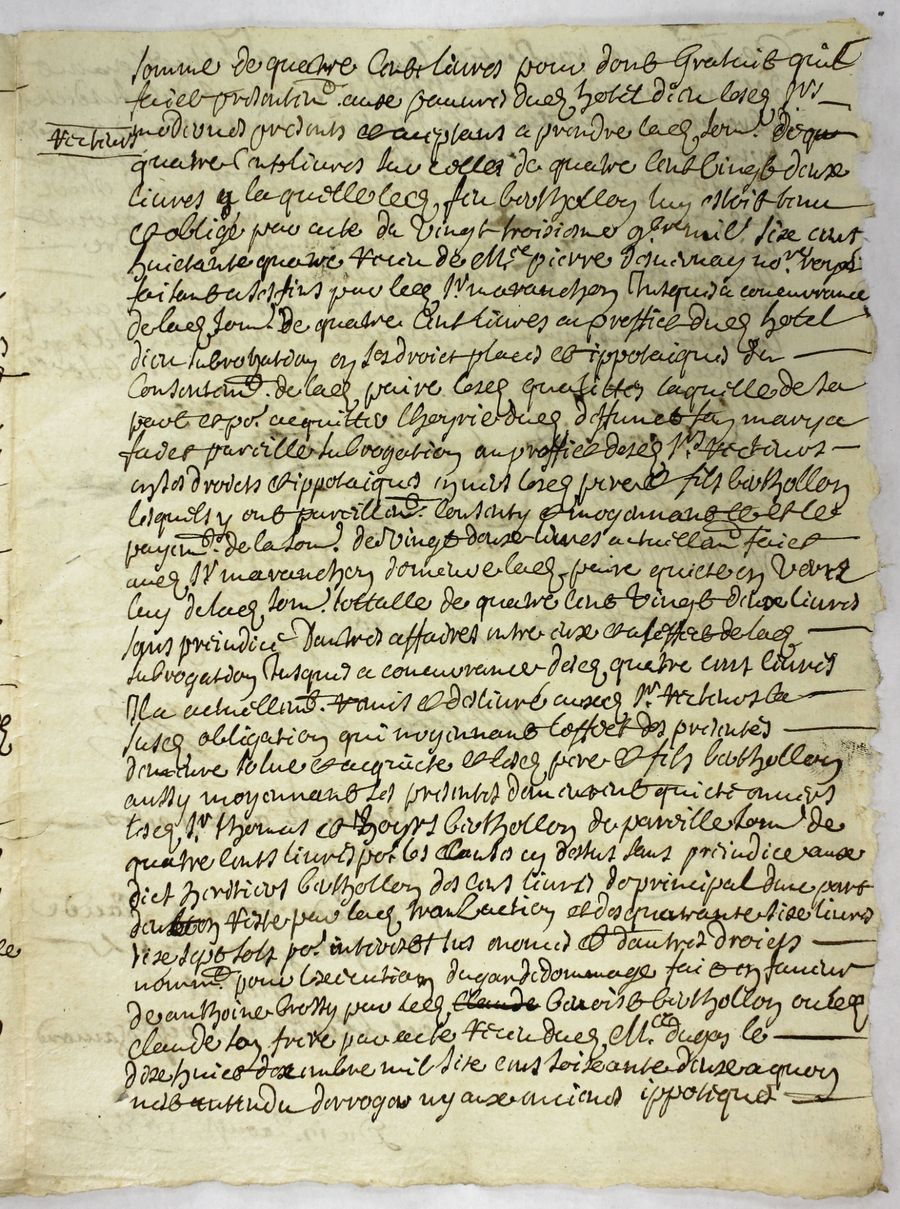 somme de quattre Cents livres pour dont Gratuit quil
faict presentem.t aux pauvres dud. hotel dieu lesd. S.rs
recteurs
modernes presents et acceptans a prendre lad. som.e de
quatre Cents livres sur celles de quatre Cent vingt deux
livres a laquelle led. feu berthollon luy estoit tenu
et obligé par acte du vingt troisiesme 9bre mil six cent
huictante quatre receu de M.re pierre no.re royal
faisant a ses fins par led. S.r maranchon Jusques a concurrance
de lad. som.e de quatre Cent livres au proffict dud. hotel
dieu subrogation en ses droict places et ippotaiques du
Consentem.t de lad. paire lesd. qualittes laquelle de sa
part et po.r acquitter lheyrie dud. deffunct son mary a
faict pareille subrogation au proffict desd. S.rs recteurs
en ses droicts et ippotaiques envers lesd. pere et fils berthollon
lesquels y ont pareillem.t Consenty et moyennant ce et le
payem.t de la som.e de vingt deux livres actuellem.t faict
aud. S.r maranchon demeure lad. paire quicte en vers
luy de lad. som.e tottalle de quatre cent vingt deux livres
sans preiudice dautres affaires entre eux et a leffect de lad.
subrogation Jusques a concurrance desd. quatre cent livres
Il a actuellem.t remis et deslivré auxd. S.rs recteurs la
susd. obligation qui moyennant leffect des presentes
demeure solue et acquicte et lesd. pere et fils berthollon
aussy moyennant les presentes demeurent quicte envers
lesd. S.r thomas et hoyrs berthollon de pareille som.e de
quatre cents livres po.r les Causes cy dessus sans preiudice aux
dict heritiers berthollon des cens livres de principal dune part
restee par lad. tranzaction et des quarante sixe livres
sixe sept sols po.r interest et dautres droicts
nomm.t pour lexecution du gardedommage fait en faveur
de anthoine brossy par led. benoist berthollon ou led.
Claude son frere par acte receu dud. M.re dugas le
dixe huict mil sixe cens soixante douxe a quoy
nest entendu derroger ny aux anciens ippoteques